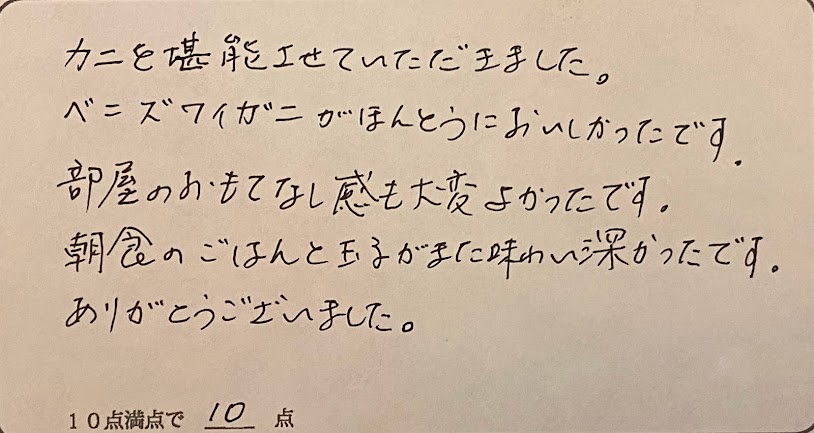 カニを堪能させていただきました。
ベニズワイガニがほんとうにおいしかったです.
部屋のおもてなし感も大変よかったです.
朝食のごはんと玉子がまた味わい深かったです.
ありがとうございました。
10点満点で 10 点